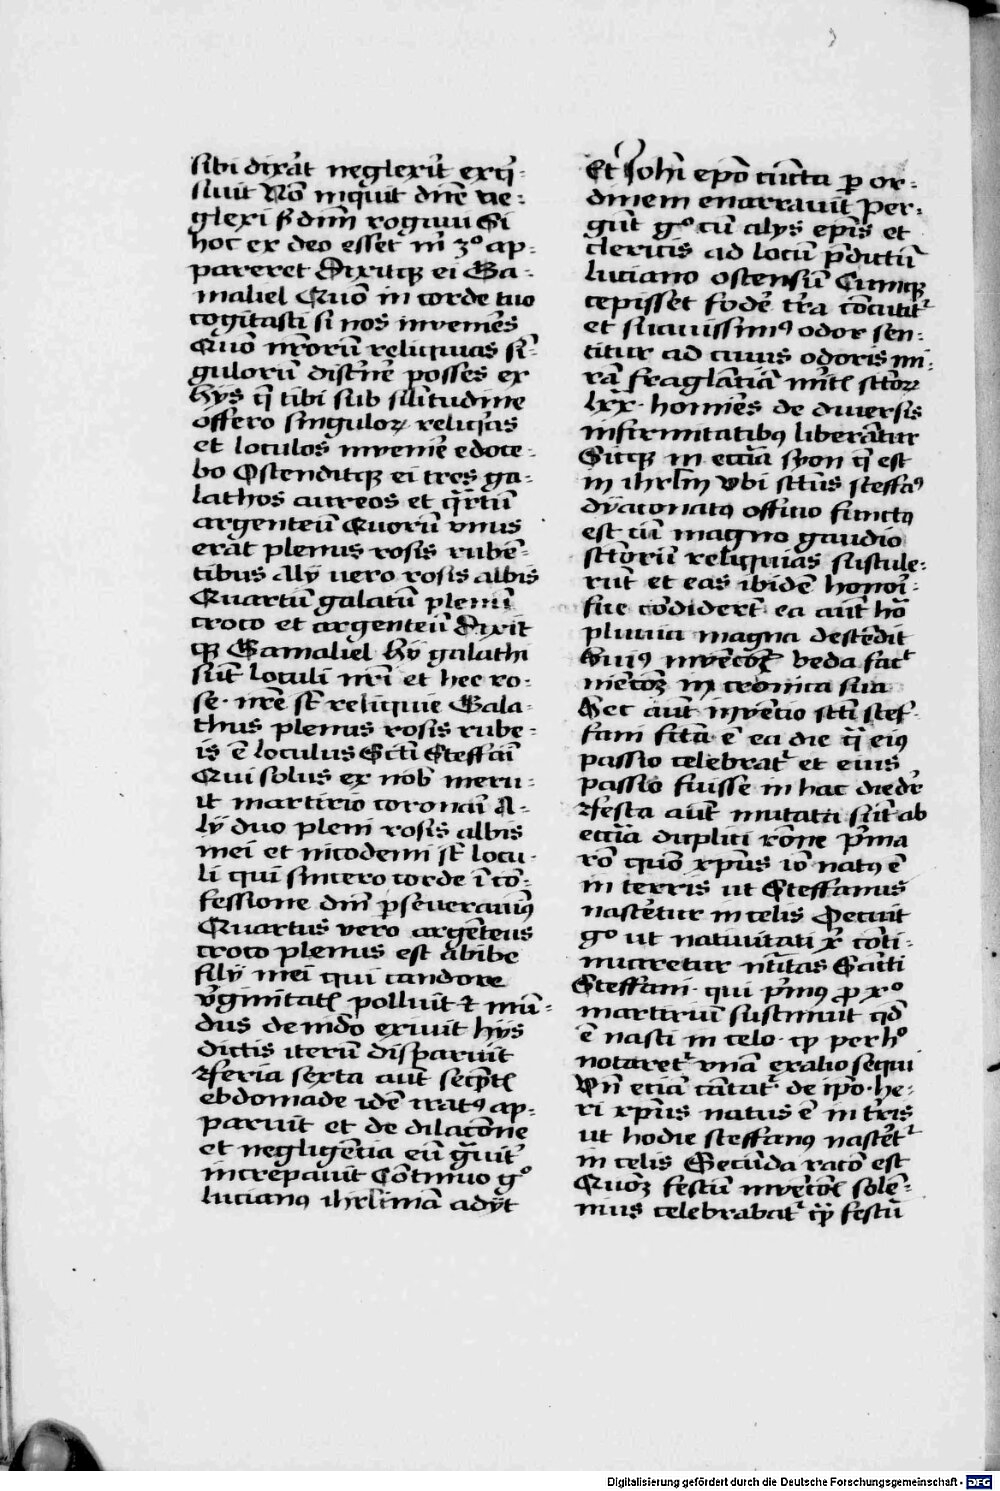 sibi dixat neglexit exqi-
siuit Nō inquit dn̄e ne-
glexi sꝫ dn̄m rogaui Si
hoc ex deo esset m̄ 3º ap-
pareret Dixitqꝫ ei Ga-
maliel Quō in corde tuo
cogitasti si nos invenies
Quō nr̄orū reliquias sī-
gulorū discn̄e posses ex
hijs q̄ tibi sub silitudine
offero singuloꝝ reliqias
et loculos invenie edoce-
bo Ostenditqꝫ ei tres ga-
lathos aureos et qr̄tū
argenteū Quorū vnus
erat plenus rosis rubē-
tibus Alij uero rosis albis
Quartū galatū plenū
croco et argenteū Dixit
qꝫ Gamaliel Hij galathi
sūt loculi nr̄i et hec ro-
se nr̄e st̄ reliquie Gala-
thus plenus rosis rube-
is ē loculus Scti Steffani
Qui solus ex nob meru-
it martirio coronari A-
lij duo pleni rosis albis
mei et nicodemi st̄ locu-
li qui sincero corde ī cō-
fessione dni ꝑseueravimꝰ
Quartus vero argēteus
croco plenus est abibe
filij mei qui candore
v̓ginitatis polluit ⁊ mū-
dus de mūdo exivit hijs
dictis iterū disparuit
Feria sexta aut̄ seqn̄tis
ebdomade idē iratꝰ ap-
paruit et de dilacōne
et negligētia eū g̓uit̓
increpavit Cōtinuo gº
lucianꝰ ihrl̄imā adijt
Et Johī epō cūcta ꝑ or-
dinem enarravit Per-
gūt gº cū alijs epīs et
clericis ad locū p̄dictū
luciano ostensū Cumqꝫ
cepisset fode tr̄a cōcutit̓
et suauissimꝰ odor sen-
titur ad cuius odoris mi-
rā fraglātiā mītis sctoꝝ
lxx homīes de diuersis
infirmitatibꝰ liberātur
Sicqꝫ in eccīa syon q̄ est
in ihrlm vbi sctūs steffaꝰ
dyaconatꝰ officio functꝰ
est cū magno gaudio
sctorū reliquias sustule-
rūt et eas ibidē honori-
fice cōdidert̄ ea aut̄ hō
pluuia magna descēdit
Huiꝰ invencōꝫ beda fac̓
mencōꝫ in cronica sua
Hec aut̄ invencio scti stef-
fani fctā ē ea die q̄ eiꝰ
passio celebrat̓ et eius
passio fuisse in hac die dr̄
Festa aut̄ mutata sūt ab
eccīa duplici rōne p̄ma
rō quō xp̄us iō natꝰ ē
in terris ut Steffanus
nascetur in celis Decuit
gº ut nativitati xi cōti-
nuaretur ntitas Sancti
Steffani qui p̓mꝰ ꝓ xº
martiriū sustinuit qd̄
ē nasci in celo qꝫ per hº
notaret̓ vnā ex alio sequi
Vn̄ eciā cātat̓ de ip̄o he-
ri xp̄us natus ē in tr̄is
ut hodie steffanꝰ nascet̓
in celis Secūda ratō est
Quōꝫ festū invecōis solē-
nius celebrabat̓ qꝫ festū
Digitalisierung gefördert durch die Deutsche Forschungsgemeinschaft - DFG